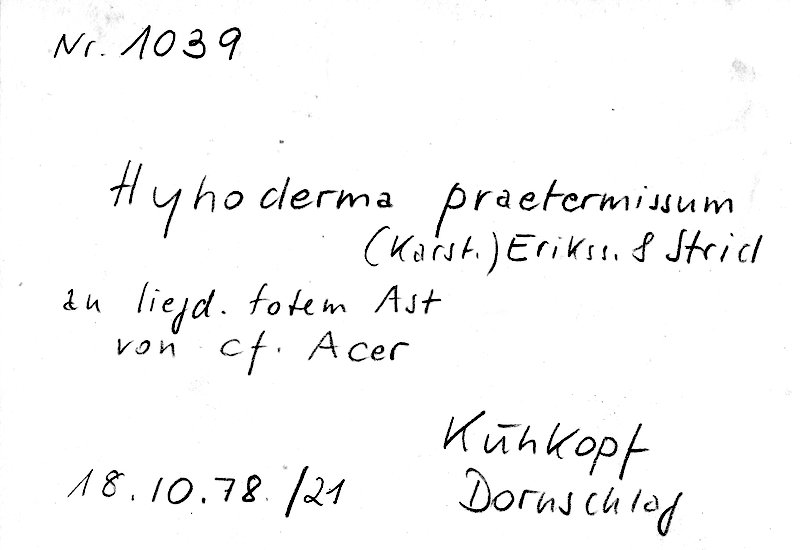 Nr. 1039
Hyphoderma praetermissum
(Karst.) Erikss. & Strid
an liegd. totem Ast
von cf. Acer
Kühkopf
18.10.78 /21 Dornschlag